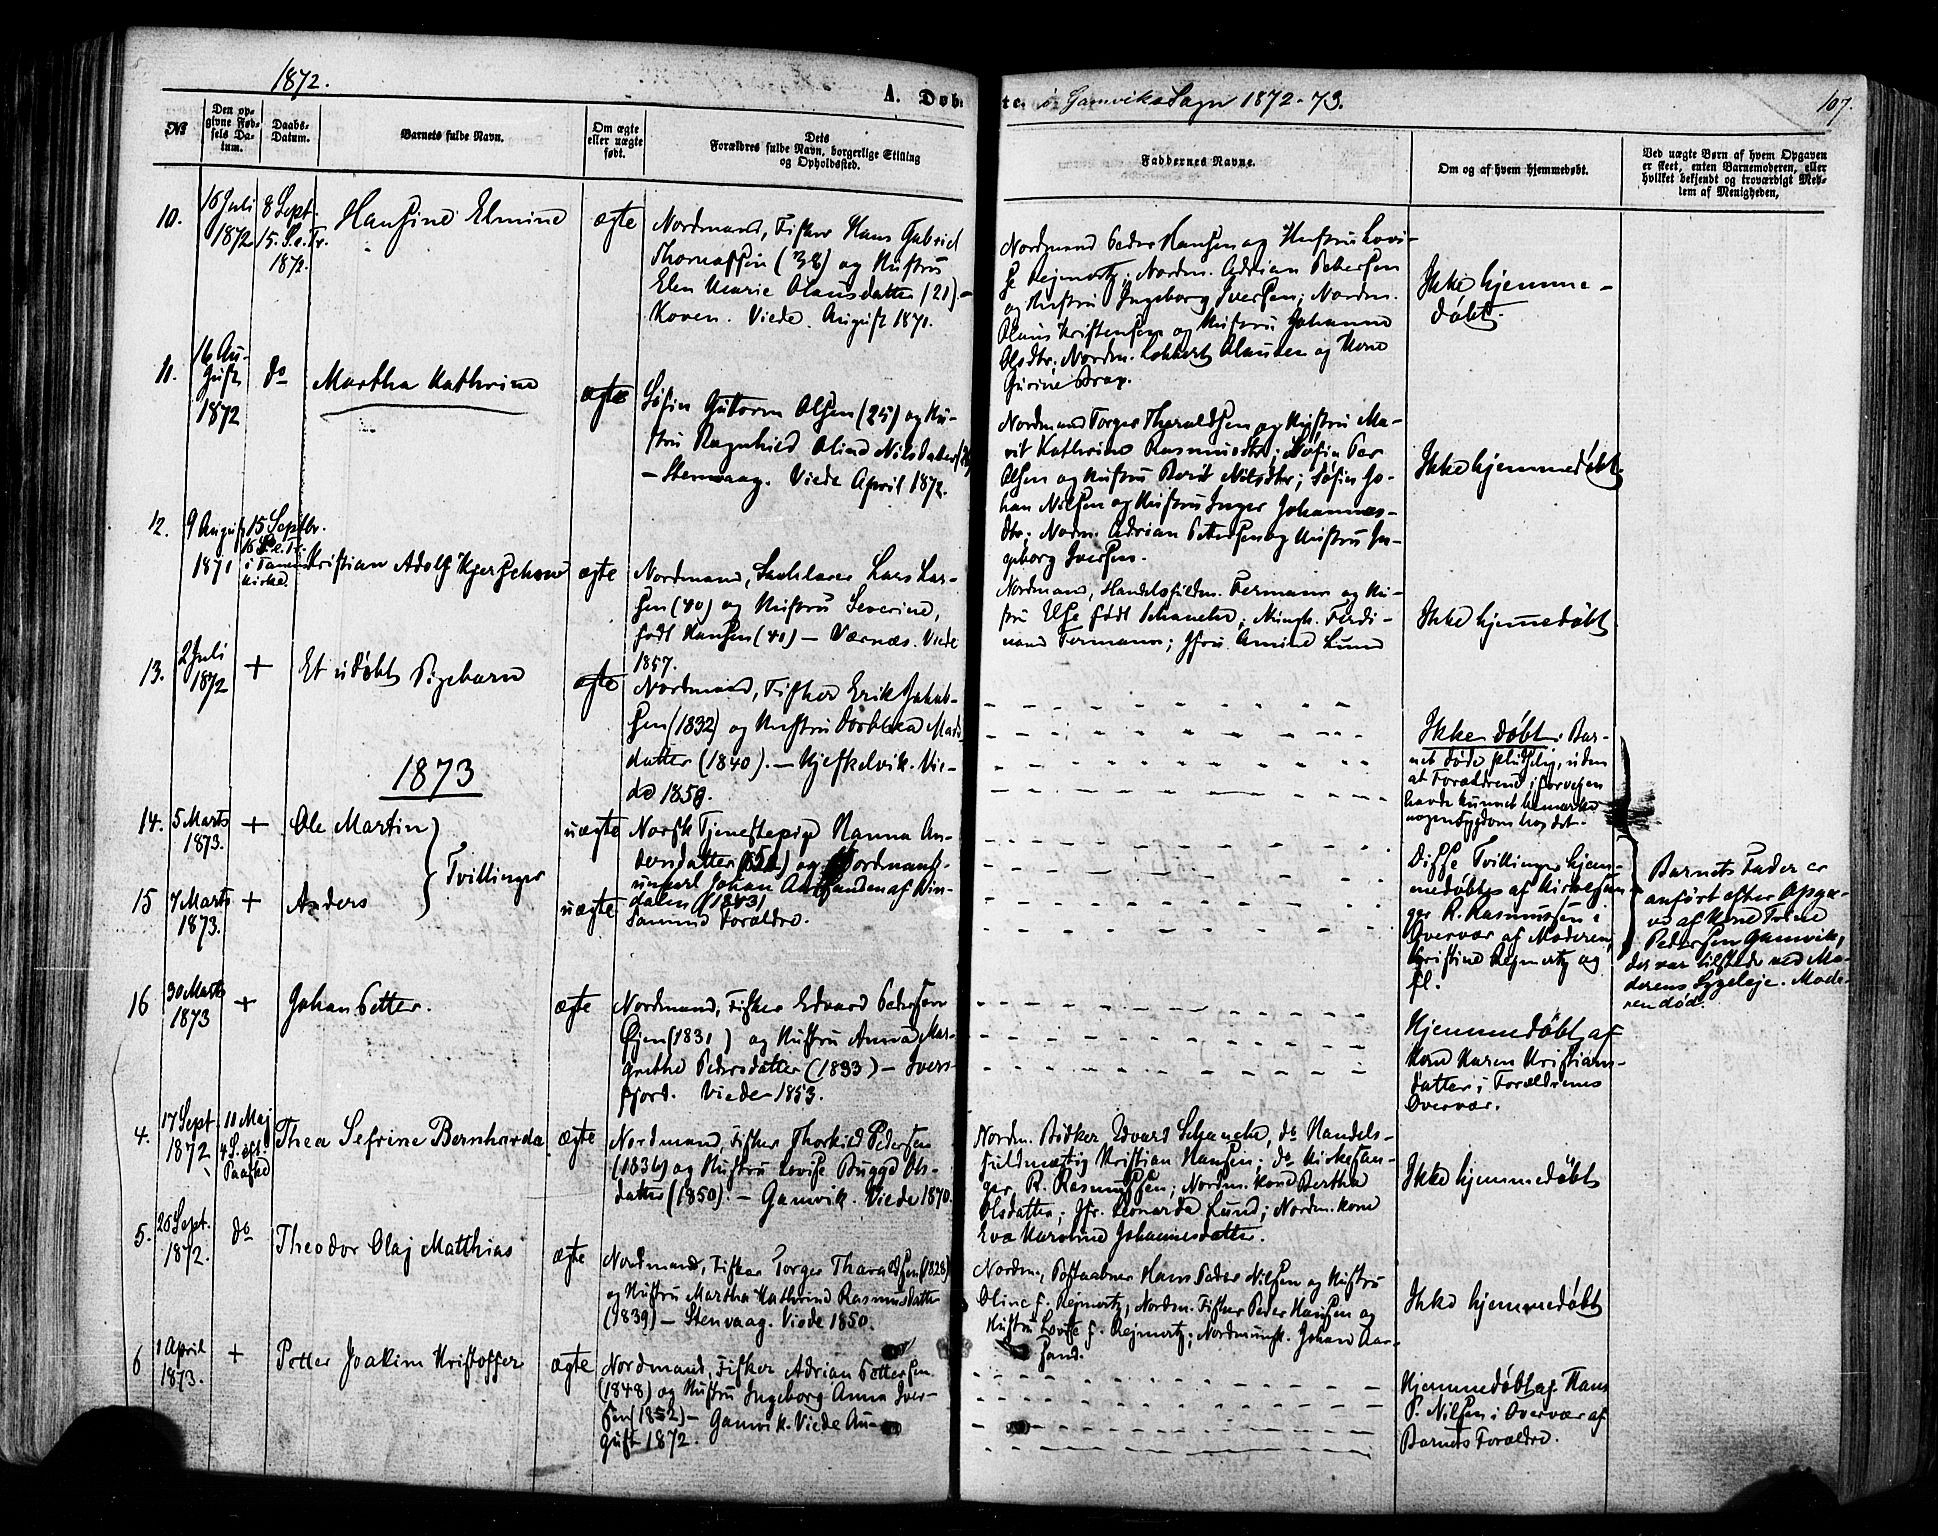 1872.
A. Døb-
te. i Gamviks Sogn 1872-73.
107.
No
Den op-
givne Fød-
sels Da-
tum.
Daabs-
Datum.
Barnets fulde Navn.
Om ægte
eller uægte
født.
Dets
Forældres fulde Navn, borgerlige Stilling
og Opholdssted.
Faddernes Navne.
Om og af hvem hjemmedøbt.
Ved uægte Børn af hvem Opgaven
er skeet, enten Barnemoderen, eller
hvilket bekjendt og troværdigt Med-
lem af Menigheden.
10.
16 Juli
1872
8 Sept.
15. S. e. Tr.
1872.
Hansine Elmine
ægte
Nordmand, Fisker Hans Gabriel
Thomassen (38) og Hustru
Elen Marie Olausdatter (21) –
Koven. Viede August 1871.
Nordmand Peder Hansen og Hustru Lovi-
se Rejmertz; Nordm. Adrian Petersen
og Hustru Ingeborg Iversen; Nordm.
Olaus Kristensen og Hustru Johanna
Olsdtr, Nordm. Clausen og Kone
Gurine
Ikke hjemme-
døbt.
11.
16 Au-
gust
1872
do
Martha Kathrine
ægte
Søfin Guttorm Olsen (25) og Hu-
stru Ragnhild Oline Nilsdatter
– Stenvaag. Viede April 1872.
Nordmand Torger Tharaldsen og Hustru Ma-
rit Kathrine Rasmusdtr; Søfin Per
Olsen og Hustru Berit Nilsdtr; Søfin Jo-
han Nilsen og Hustru Inger Johannes-
dtr; Nordm. Adrian Pettersen og Hustru In-
geborg Iversen.
Ikke hjemmedøbt
12.
9 August
1871
15 Septbr.
16 S. e. Tr.
i Tanens
Kirke.
Kristian Adolf Kjerschow
ægte
Nordmand, Lars Lar-
sen (40) og Hustru Severine,
født Hansen (40) – Værnæs. Viede
1857.
Nordmand, Handelsfuldm. Fermann og Hu-
stru Else født Schanche; Ungk. Ferdi-
nand Fermann; Jfru Amine Lund
Ikke hjemmedøbt.
13.
2 Juli
1872
+
Et udøbt Pigebarn
ægte
Nordmand, Fisker Erik Jakob-
sen (1832) og Hustru Mads-
datter (1840). – Kjefkelvik. Vie-
de 1859.
Ikke døbt. Bar-
net døde pludselig, uden
at Forældrene i Forvejen
havde kunnet bemærke
nogen Sygdom hos det.
1873
14.
5 Marts
1873.
+
Ole Martin
Tvillinger
uægte
Norsk Tjenestepige Hanna An-
dersdatter og Nordmand
ungkarl Johan Aarsanden af Rin-
dalen (1843)
15
7 Marts
1873.
+
Anders
uægte
samme Forældre.
Disse Tvillinger hjem-
medøbtes af Kirkesan-
ger R. Rasmussen i
Overvær af Moderen,
Kristine Rejmertz og
fl.
Barnets Fader er
anført efter Opga-
ve af Kone Trine
Pedersen Gamvik,
der var tilstede ved Mo-
derens Sygeleje. Mode-
ren død.
16
30 Marts
1873
+
Johan Petter.
ægte
Nordmand, Fisker Edvard Pedersen
Øjen (1831) og Hustru Anna Mar-
grethe Pedersdatter (1833) – Ivers-
fjord. Viede 1853.
Hjemmedøbt af
Kone Karen Kristians-
datter i Forældrenes
Overvær.
4.
17 Sept.
1872
11 Maj
4 S. eft.
Paaske
Thea Sefrine Bernharda
ægte
Nordmand, Fisker Thorkild Pedersen
(1836) og Hustru Lovise Bugge Ols-
datter (1850). – Gamvik. Viede 1870.
Nordm. Bødker Edvard Schanche, do Handels-
fuldmægtig Kristian Hansen; do Kirkesan-
ger R. Rasmussen; Nordm. kone Bertha
Olsdatter; Jfr. Leonarda Lund; Nordm. kone
Eva Karoline Johannesdatter.
Ikke hjemmedøbt
5.
25 Sept.
1872.
do
Theodor Olaj Matthias
ægte
Nordmand, Fisker Torger Tharaldsen (1828)
og Hustru Martha Kathrine Rasmusdatter
(1839) – Stenvaag. Viede 1850.
Nordm., Postaabner Hans Peder Nilsen og Hustru
Oline f. Rejmertz, Nordm. Fisker Peder Hansen og
Hustru Lovise f. Rejmertz; Nordm. ungk. Johan Aar-
sand.
Ikke hjemmedøbt
6
1 April
1873.
+
Petter Joakim Kristoffer
ægte
Nordmand, Fisker Adrian Pettersen
(1848) og Hustru Ingeborg Anna Iver-
sen (1852) – Gamvik. Viede Au-
gust 1872.
Hjemmedøbt af Hans
P. Nilsen i Overvær af
Barnets Forældre.